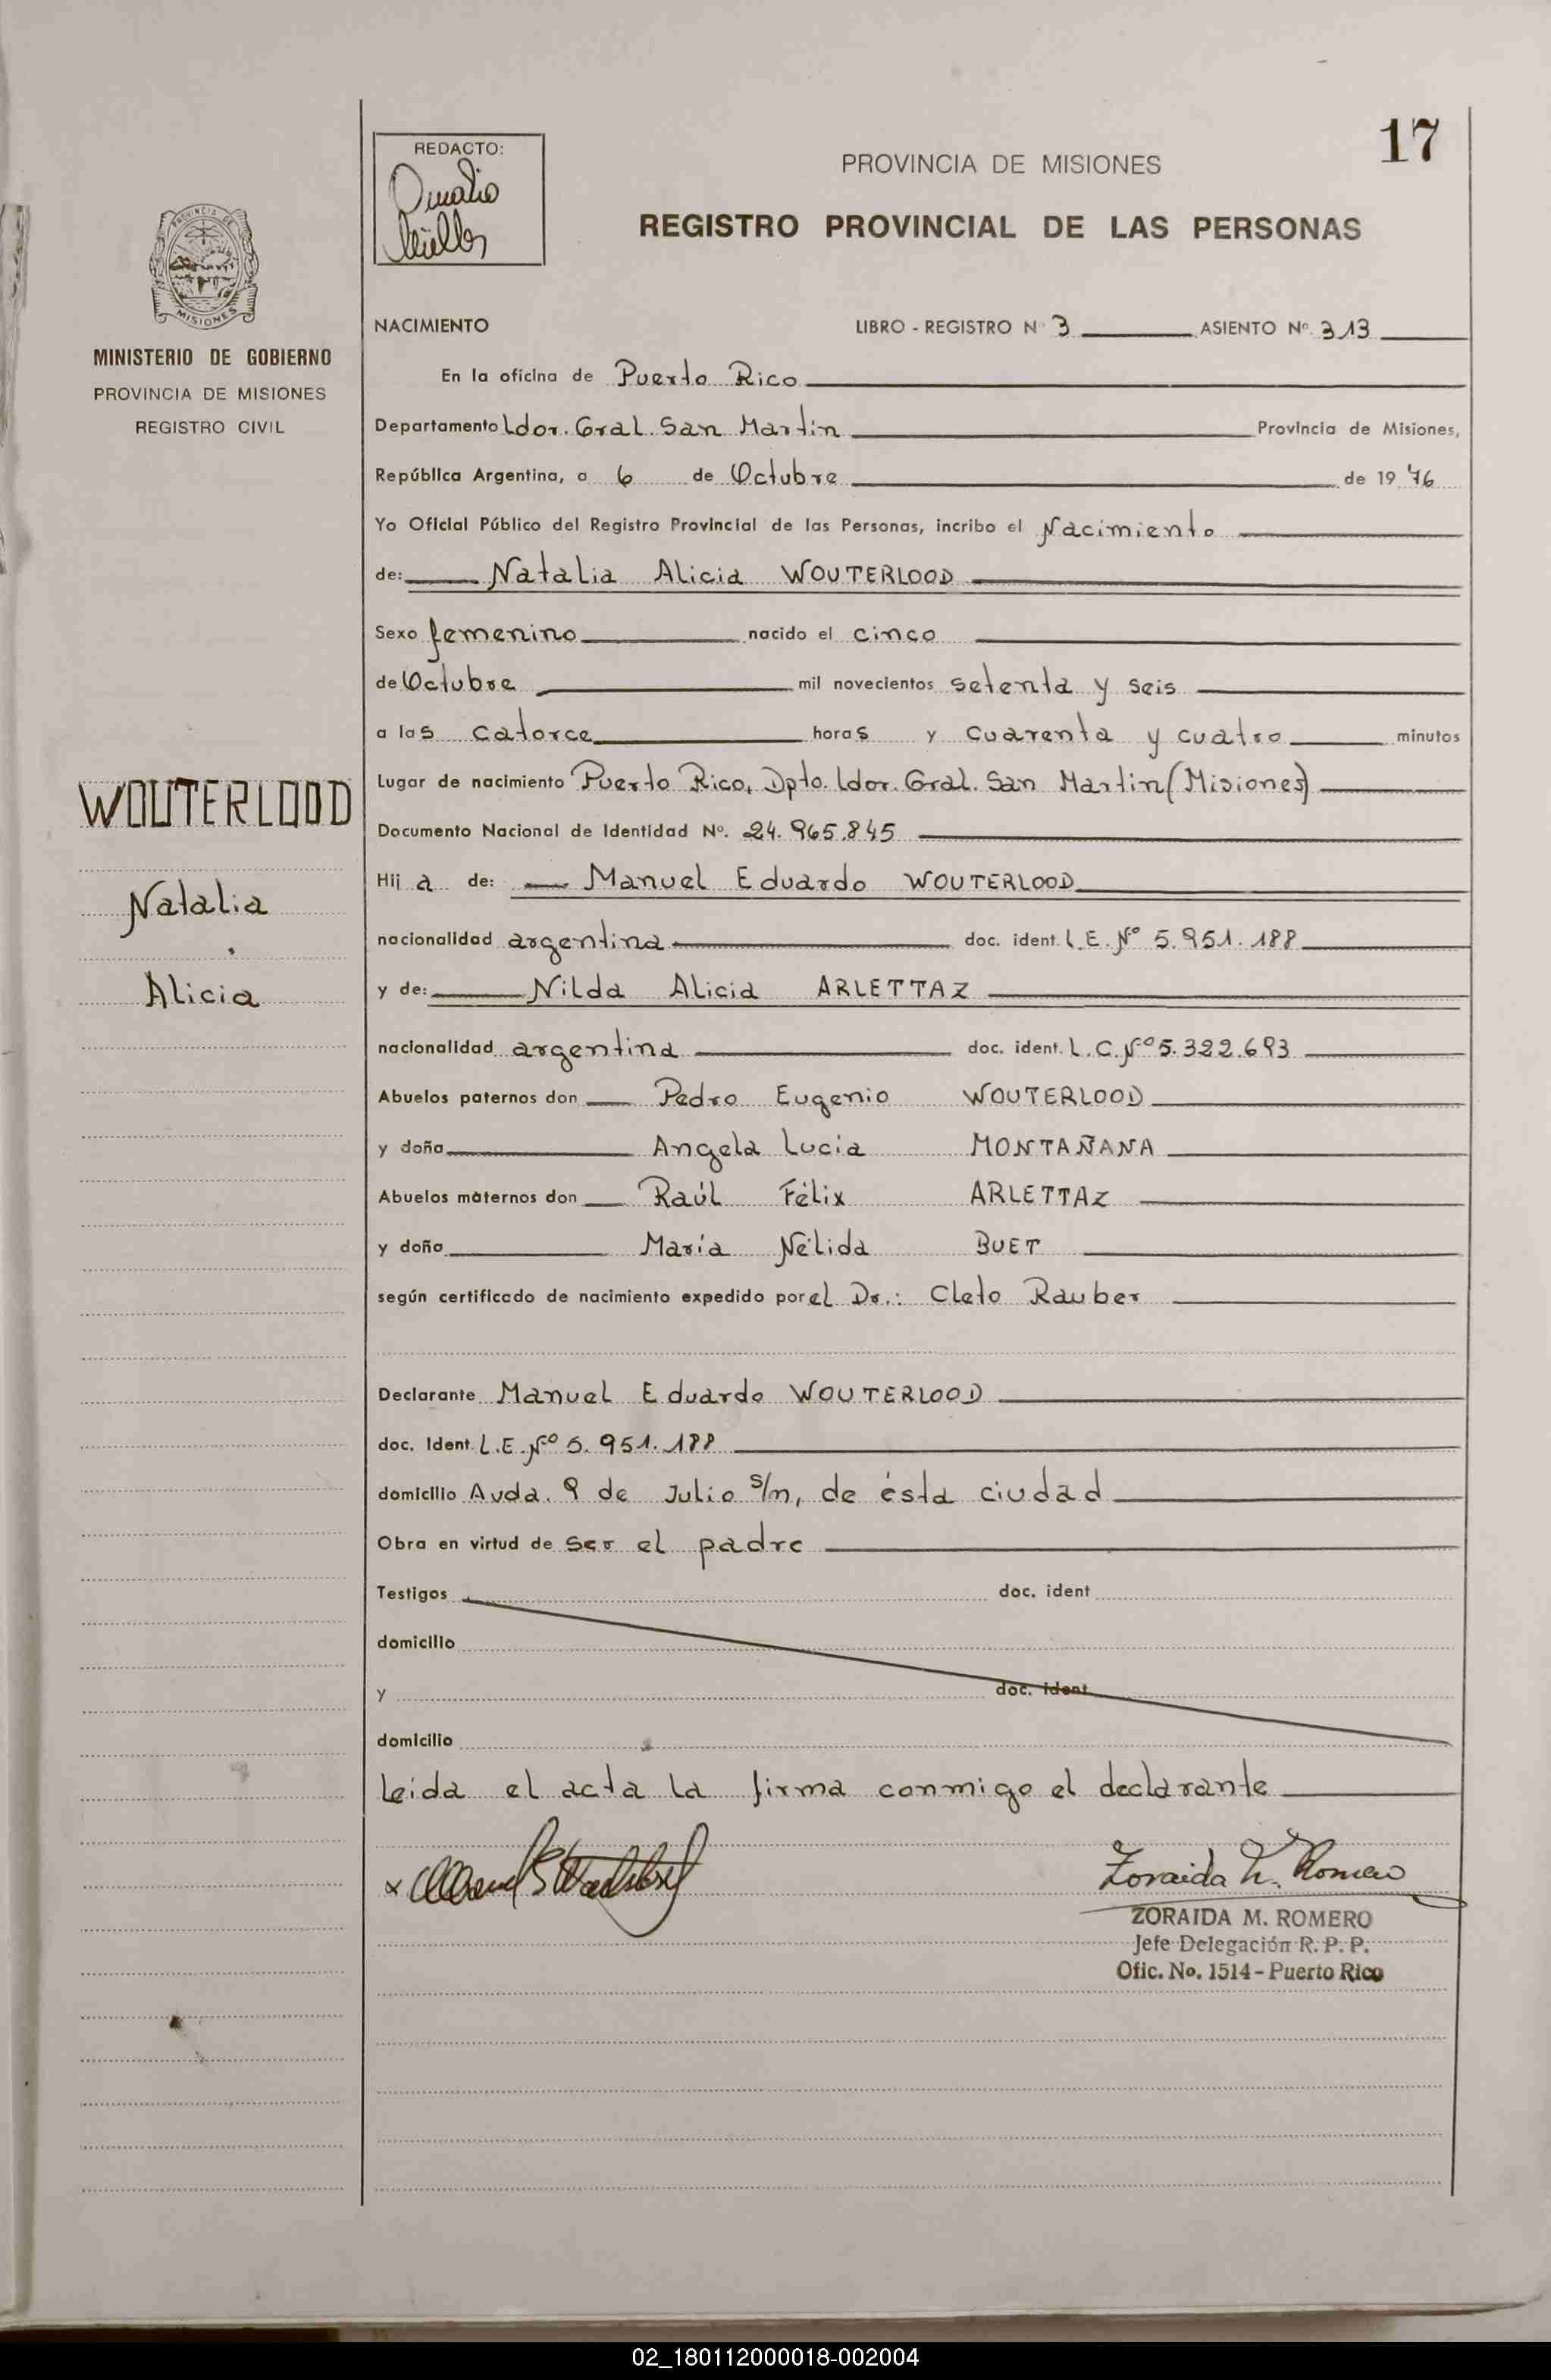 17
REDACTO:
PROVINCIA DE MISIONES
REGISTRO PROVINCIAL DE LAS PERSONAS
MISIONES
MINISTERIO DE GOBIERNO
PROVINCIA DE MISIONES
REGISTRO CIVIL
WOUTERLOOD
Natalia
Alicia
NACIMIENTO LIBRO - REGISTRO Nº 3 ASIENTO Nº. 313
En la oficina de Puerto Rico
Departamento Ldor. Gral. San Martín Provincia de Misiones,
República Argentina, a 6 de Octubre de 1976
Yo Oficial Público del Registro Provincial de las Personas, incribo el Nacimiento
de: Natalia Alicia WOUTERLOOD
Sexo femenino nacido el cinco
de Octubre mil novecientos setenta y seis
a las catorce horas y cuarenta y cuatro minutos
Lugar de nacimiento Puerto Rico, Dpto. Ldor. Gral. San Martín (Misiones)
Documento Nacional de Identidad Nº. 24.965.845
Hija de: Manuel Eduardo WOUTERLOOD
nacionalidad argentina doc. ident. L.E. Nº 5.951.188
y de: Nilda Alicia ARLETTAZ
nacionalidad argentina doc. ident. L.C. Nº 5.322.693
Abuelos paternos don Pedro Eugenio WOUTERLOOD
y doña Angela Lucia MONTAÑANA
Abuelos maternos don Raúl Félix ARLETTAZ
y doña María Nélida BUET
según certificado de nacimiento expedido por el Dr.: Cleto Rauber
Declarante Manuel Eduardo WOUTERLOOD
doc. Ident. L.E. Nº 5.951.188
domicilio Avda. 9 de Julio s/n, de ésta ciudad
Obra en virtud de ser el padre
Testigos doc. ident
domicilio
y doc. ident
domicilio
leida el acta la firma conmigo el declarante
Zoraida M. Romero
ZORAIDA M. ROMERO
Jefe Delegación R. P. P.
Ofic. No. 1514 - Puerto Rico
02_180112000018-002004